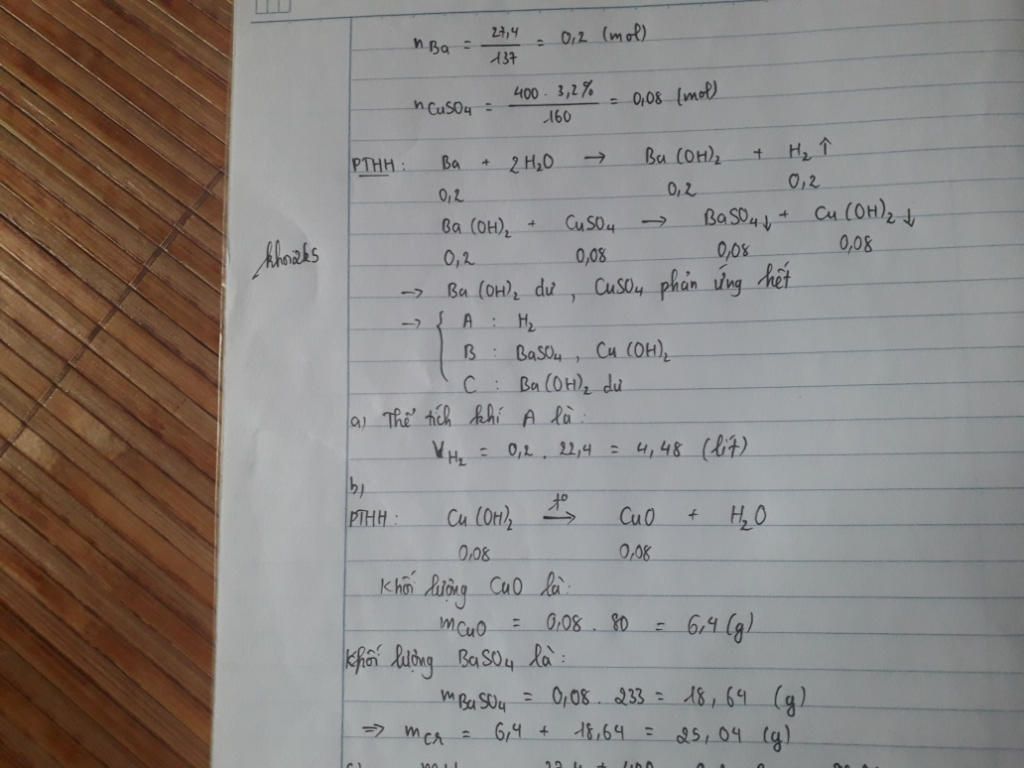 nBa = 27,4/137 = 0,2 (mol)
nCuSO4 = 400 . 3,2%/160 = 0,08 (mol)
PTHH: Ba + 2H2O → Ba(OH)2 + H2↑
0,2 0,2 0,2
Ba(OH)2 + CuSO4 → BaSO4↓ + Cu(OH)2↓
0,2 0,08 0,08 0,08
khoi2k5
→ Ba(OH)2 dư, CuSO4 phản ứng hết
→ { A : H2
B : BaSO4, Cu(OH)2
C : Ba(OH)2 dư
a) Thể tích khí A là:
VH2 = 0,2 . 22,4 = 4,48 (lít)
b)
PTHH: Cu(OH)2 t°→ CuO + H2O
0,08 0,08
Khối lượng CuO là:
mCuO = 0,08 . 80 = 6,4 (g)
Khối lượng BaSO4 là:
mBaSO4 = 0,08 . 233 = 18,64 (g)
⇒ mCR = 6,4 + 18,64 = 25,04 (g)